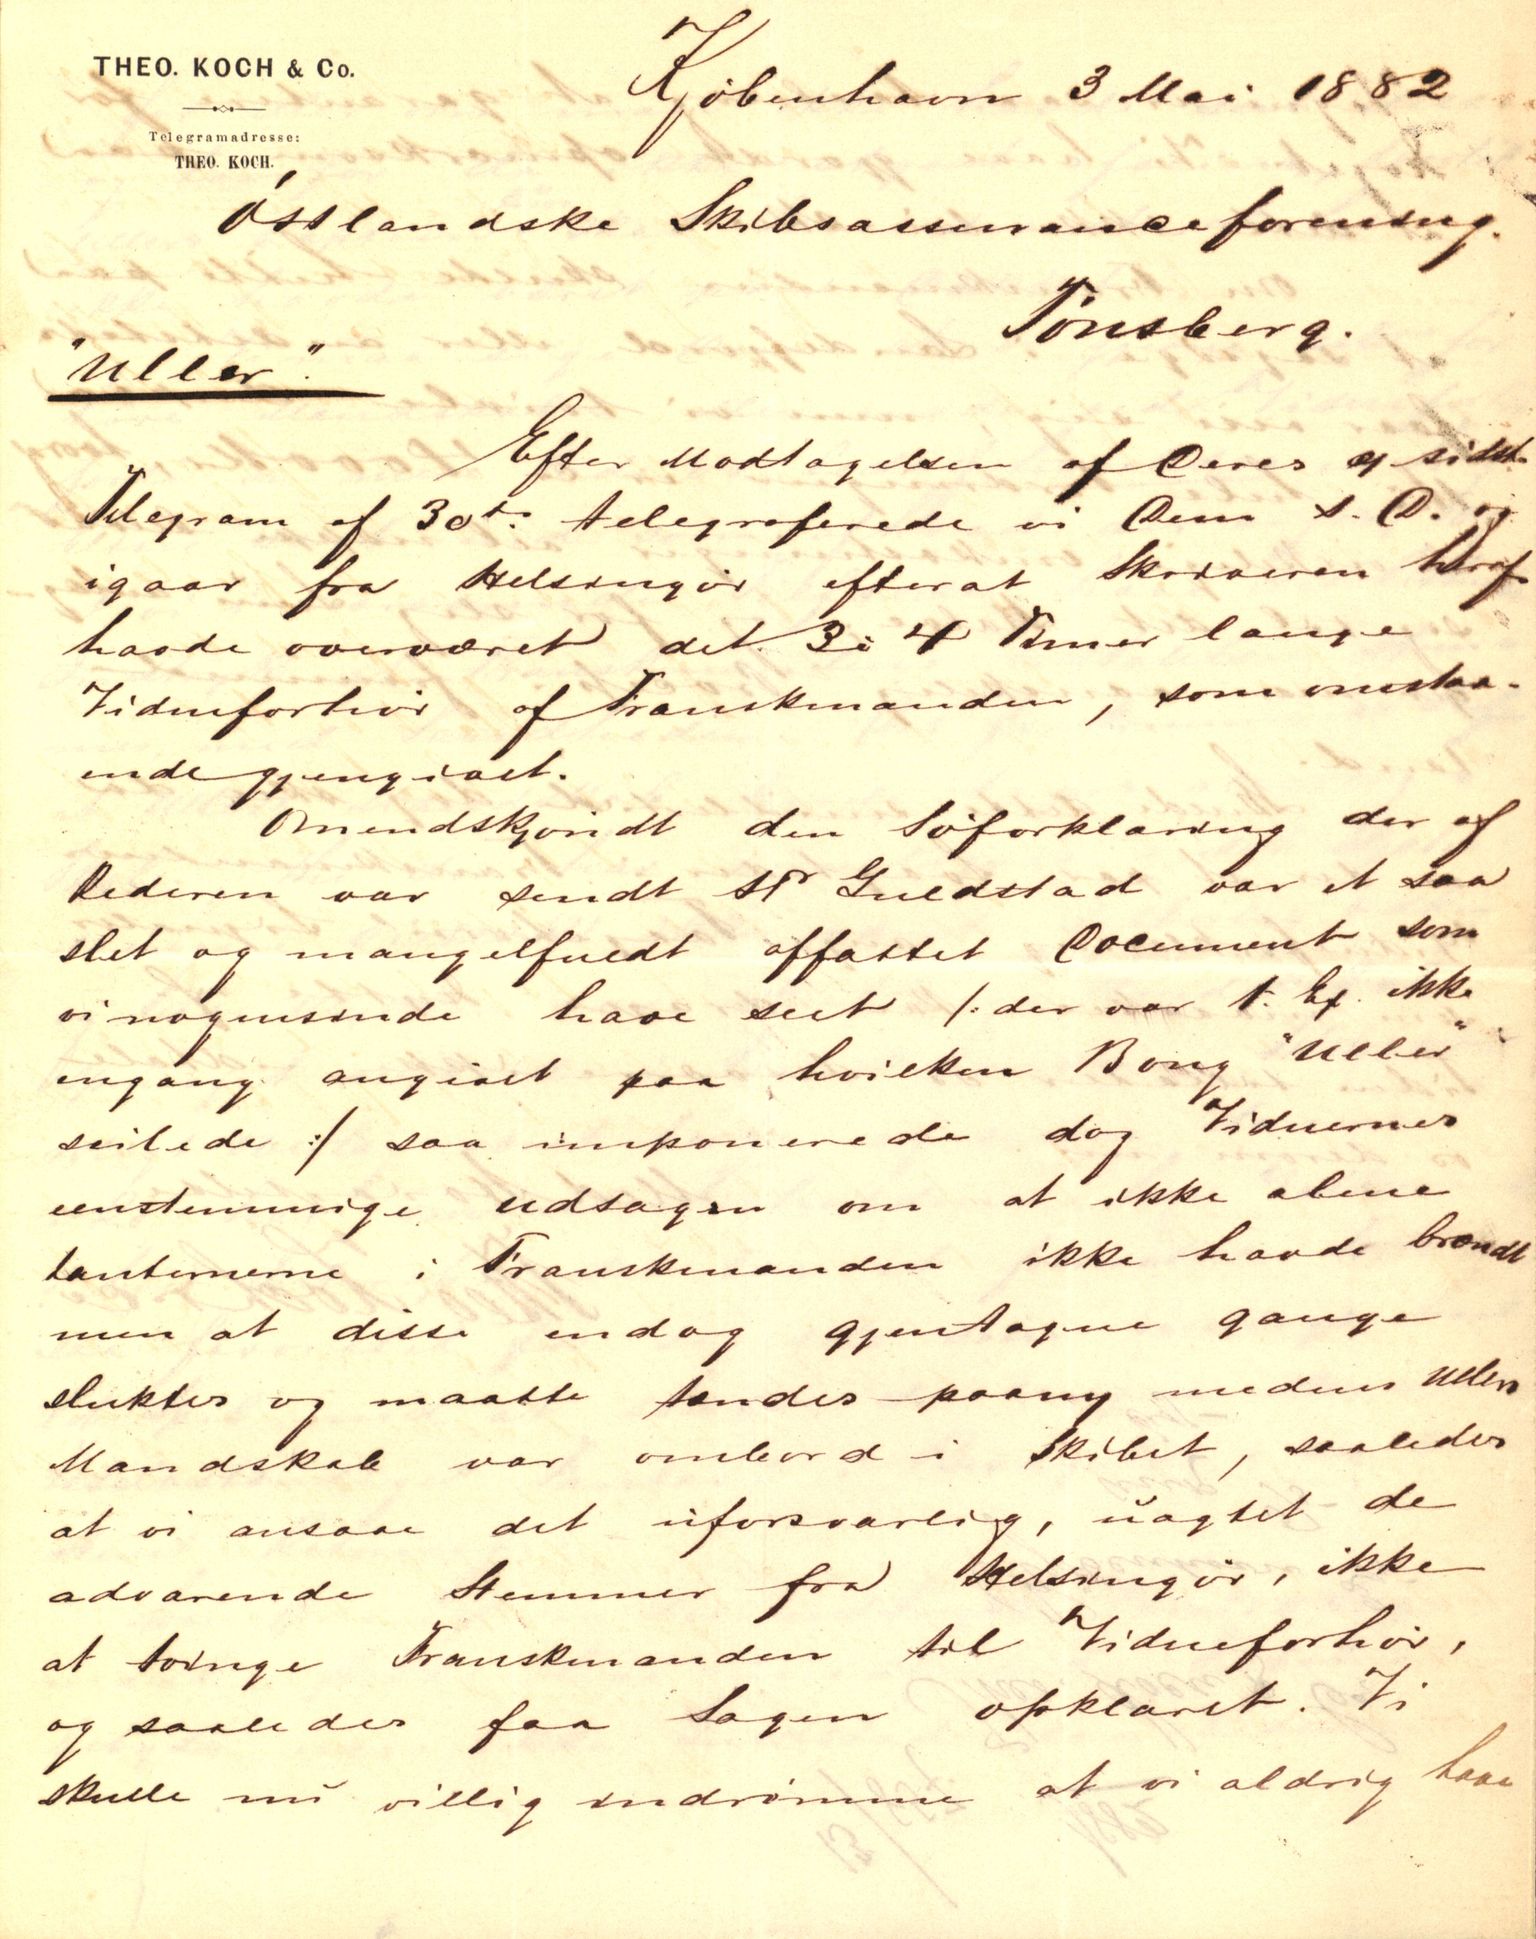 THEO. KOCH & Co.
Telegramadresse:
THEO. KOCH.
Kjöbenhavn 3 Mai 1882
Östlandske Skibsassuranceforening.
Tönsberg.
"Uller".
Efter Modtagelsen af Deres sidste
Telegram af 30te telegraferede vi Dem s. D. og
igaar fra Helsingör efterat Skriveren heraf
havde overværet det 3 á 4 Timer lange
Vidneforhör af Franskmanden, som omstaa-
ende gjengivet.
Omendskjöndt den Söforklaring der af
Rederen var sendt Hr Guldstad var et saa
slet og mangelfuldt affattet Document som
vi nogensinde have seet /: der var t. Ex. ikke
engang angivet paa hvilken Boug "Uller"
seilede :/ saa imponerede dog Vidnernes
eenstemmige Udsagn om at ikke alene
Lanternerne i Franskmanden ikke havde brændt
men at disse endog gjentagne gange
sluktes og maatte tændes paany medens Ullers
Mandskab var ombord i Skibet, saaledes
at vi ansaae det uforsvarlig, uagtet de
advarende Stemmer fra Helsingör, ikke
at tvinge Franskmanden til Vidneforhör,
og saaledes faa Sagen opklaret. Vi
skulle nu villig indrömme at vi aldrig have